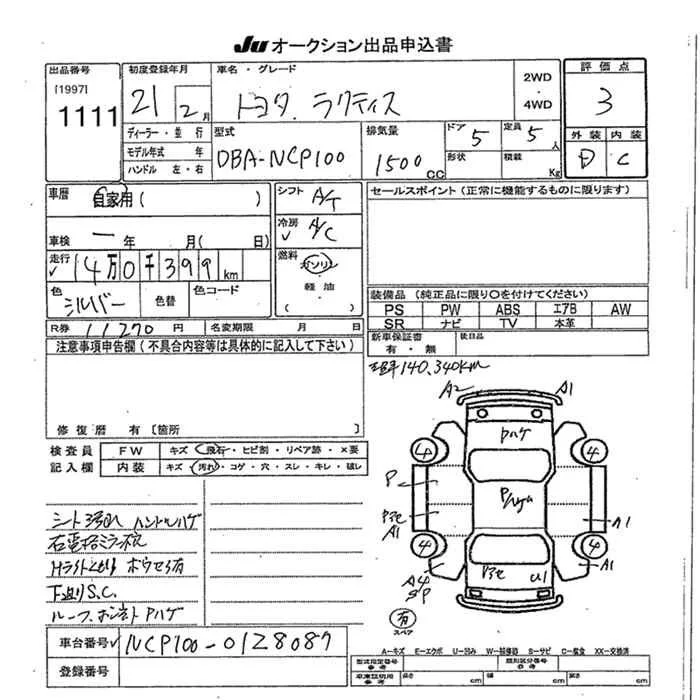 JU オークション出品申込書
出品番号
[1997]
1111
初度登録年月
21 2月
車名・グレード
トヨタ ラクティス
2WD
・
4WD
評価点
3
ディーラー・並行
モデル年式 年
ハンドル 左・右
型式
DBA-NCP100
排気量
1500 CC
ドア 5
定員 5人
形状
積載 Kg
外装 内装
D C
車歴 自家用( )
車検 ー 年 月( 日)
走行 14万0千399km
色 シルバー 色替
色コード
シフト A/T
冷房 A/C
燃料 ガソリン
軽油
( )
セールスポイント(正常に機能するものに限ります)
装備品(純正品に限り○を付けてください)
PS PW ABS エアB AW
SR ナビ TV 本革
R券 11270円 名変期限 月 日
新車保証書
有・無
後日品
注意事項申告欄(不具合内容等は具体的に記入して下さい)
修復歴 有 [箇所
140,340km
検査員
記入欄
FW キズ・飛石・ヒビ割・リペア跡・×要
内装 キズ・汚れ・コゲ・穴・スレ・キレ・破レ
シート汚れ ハンドルハゲ
右電格ミラー
下廻りS.C.
ルーフ、ボンネット Pハゲ
A2 A1
Pハゲ
4 4
P
A1
A1
4 4
A4
U1
A1
有
スペア
車台番号 NCP100-0128087
登録番号
A−キズ E−エクボ U−凹み W−補修跡 S−サビ C−腐食 XX−交換済
型式指定番号
参考
類別区分番号
参考
車庫証明用
参考
長さ cm 幅 cm 高さ cm